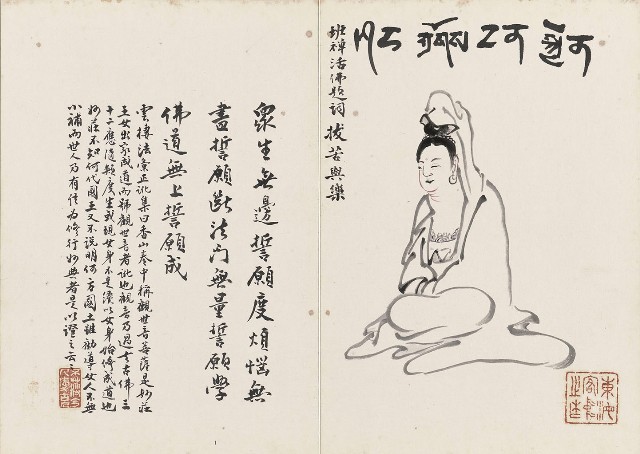 班禪活佛題詞 拔苦與樂
眾生無邊誓願度煩惱無
盡誓願斷法門無量誓願學
佛道無上誓願成
雲棲法彙正訛集曰香山卷中稱觀世音菩薩是妙莊
王女出家成道而號觀世音者訛也觀音乃過去古佛三
十二應隨類度生或現女身不是須以女身始修成道也
妙莊不知何代國王又不說明何方國土雖勸導女人不無
小補而世人乃有信為修行妙典者是以證之云々